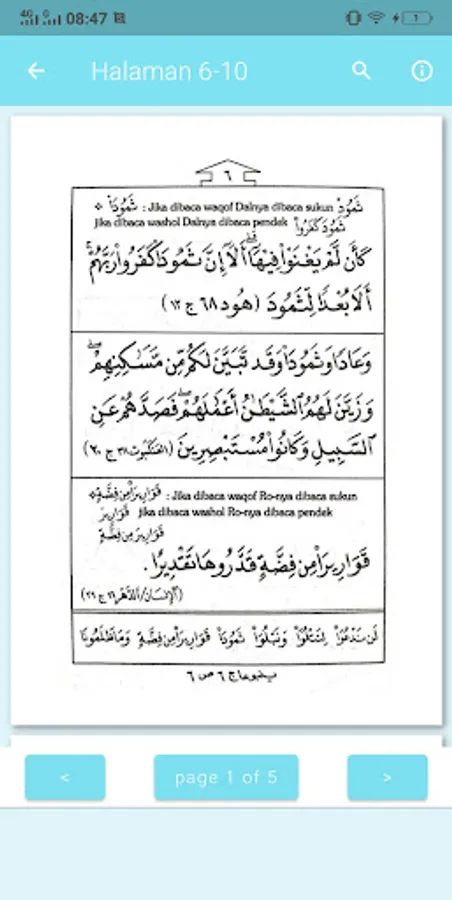 4G G 08:47 1
Halaman 6-10
٦
* ثَمُودَاْ : Jika dibaca waqof Dalnya dibaca sukun ثَمُودْ
jika dibaca washol Dalnya dibaca pendek ثَمُودَ كَفَرُواْ
كَأَن لَّمْ يَغْنَوْاْ فِيهَآ ۗ أَلَآ إِنَّ ثَمُودَاْ كَفَرُواْ رَبَّهُمْ ۗ
أَلَا بُعْدًا لِّثَمُودَ (هُود ٦٨ ج ١٢)
وَعَادًا وَثَمُودَاْ وَقَد تَّبَيَّنَ لَكُم مِّن مَّسَـٰكِنِهِمْ ۖ
وَزَيَّنَ لَهُمُ الشَّيْطَـٰنُ أَعْمَـٰلَهُمْ ۖ فَصَدَّهُمْ عَنِ
السَّبِيلِ وَكَانُواْ مُسْتَبْصِرِينَ (العنكبوت ٣٨ ج ٢٠)
* قَوَارِيرَاْ مِن فِضَّةٍ : Jika dibaca waqof Ro-nya dibaca sukun
قَوَارِيرَ jika dibaca washol Ro-nya dibaca pendek
قَوَارِيرَ مِن فِضَّةٍ
قَوَارِيرَاْ مِن فِضَّةٍ قَدَّرُوهَا تَقْدِيرًا.
(الإنسان/الدّهر ١٦ ج ٢٩)
لَن نَّدْعُوَاْ لِتَتْلُوَاْ وَنَبْلُوَاْ ثَمُودَاْ قَوَارِيرَاْ مِن فِضَّةٍ وَمَا ظَلَمُونَا
ينبوعا ج ٦ ص ٦
<
page 1 of 5
>